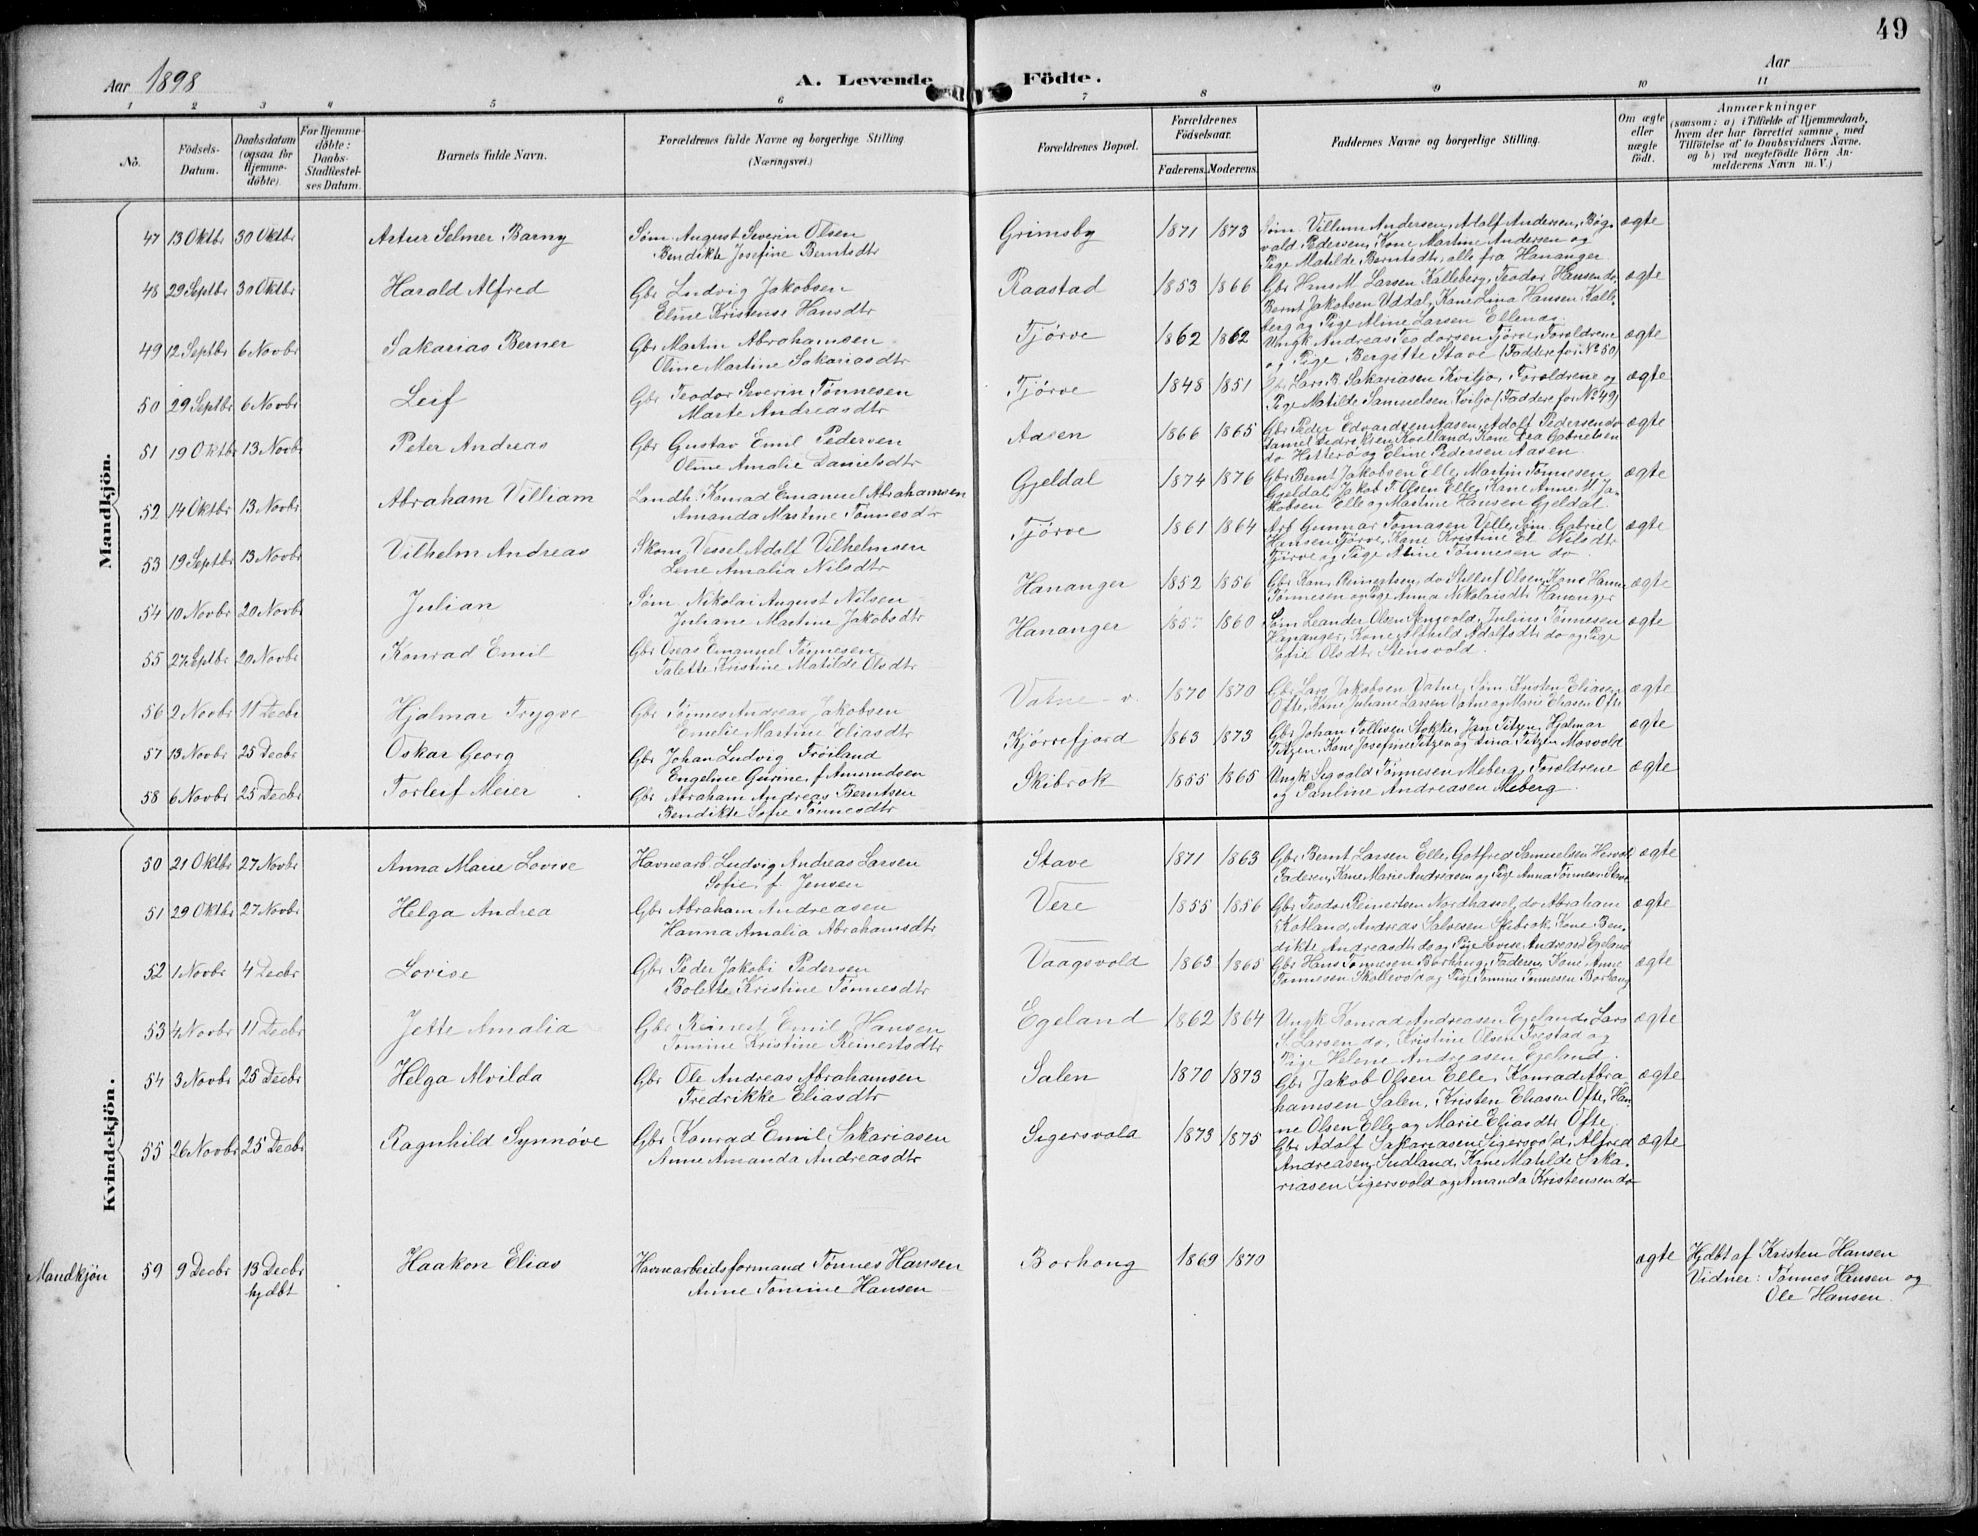 49
Aar 1898
A. Levende Födte.
Aar
1 2 3 4 5 6 7 8 9 10 11
No.
Födsels-Datum.
Daabsdatum (ogsaa for Hjemme-döbte).
For Hjemme-döbte: Daabs-Stadfæstel-ses Datum.
Barnets fulde Navn.
Forældrenes fulde Navne og borgerlige Stilling (Næringsvei.)
Forældrenes Bopæl.
Forældrenes Födselsaar.
Faderens. Moderens.
Faddernes Navne og borgerlige Stilling.
Om ægte eller uægte födt.
Anmærkninger
(saasom: a) i Tilfælde af Hjemmedaab,
hvem der har forrettet samme, med
Tilföielse af to Daabsvidners Navne,
og b) ved uægtefödte Börn An-
melderens Navn m. V.)
Mandkjön.
47 13 Oktbr 30 Oktbr Artur Selmer Barny Søm. August Severin Olsen Grimsby 1871 1873 Søm. Villum Andersen, Adolf Andersen, Bøg- ægte
Bendikte Josefine Berntsdtr vold Pedersen, Kone Martine Andersen og
Pige Matilde Berntsdtr, alle fra Hananger
48 29 Septbr 30 Oktbr Harald Alfred Gbr Ludvig Jakobsen Raastad 1853 1866 Gbr Hans M. Larsen Kalleberg, Teodor Hansen do, ægte
Eline Kristense Hansdtr Bernt Jakobsen Uddal, Kone Lina Hansen Kalle-
berg og Pige Aline Larsen Ellenes
49 12 Septbr 6 Novbr Sakarias Berner Gbr Martin Abrahamsen Tjørve 1862 1862 Ungk Andreas Teodorsen Tjørve, Forældrene ægte
Oline Martine Sakariasdtr og Pige Bergitte Stave (Faddere for No 50)
50 29 Septbr 6 Novbr Leif Gbr Teodor Severin Tønnesen Tjørve 1848 1851 Gbr Lars B. Sakariasen Kviljo, Forældrene og ægte
Marte Andreasdtr Pige Matilde Samuelsen Kviljo (Faddere for No 49)
51 19 Oktbr 13 Novbr Peter Andreas Gbr Gustav Emil Pedersen Aasen 1866 1865 Gbr Peder Edvardsen Aasen, Adolf Pedersen do ægte
Oline Amalie Danielsdtr Daniel Fedriksen Kvelland, Kone Gabrielsen
do Hitterø og Eline Pedersen Aasen
52 14 Oktbr 13 Novbr Abraham Villiam Landh. Konrad Emanuel Abrahamsen Gjeldal 1874 1876 Gbr Bernt Jakobsen Elle, Martin Tønnesen ægte
Amanda Martine Tønnesdtr Gjeldal, Jakob T. Olsen Elle, Kone Anne M. Ja-
kobsen Elle og Martine Hansen Gjeldal
53 19 Septbr 13 Novbr Vilhelm Andreas Skom. Vessel Adolf Vilhelmsen Tjørve 1861 1864 Arb Gunnar Tomasen Velle, Søm. Gabriel ægte
Lene Amalia Nilsdtr Hansen Tjørve, Kone Kristine El. Nilsdtr
Tjørve og Pige Aline Tønnesen do.
54 10 Novbr 20 Novbr Julian Søm. Nikolai August Nilsen Hananger 1852 1856 Gbr Reinertsen, do Olsen, Kone Hanne ægte
Juliane Martine Jakobsdtr Tønnesen og Pige Anna Nikolaisdtr Hananger
55 27 Septbr 20 Novbr Konrad Emil Gbr Oseas Emanuel Tønnesen Hananger 1860 Søm Leander Olsen, Julius Tønnesen ægte
Talette Kristine Matilde Olsdtr Hananger, Kone Althild Adolfsdtr do og Pige
Sofie Olsdtr Stensvold
56 2 Novbr 11 Decbr Hjalmar Trygve Gbr Tønnes Andreas Jakobsen Vatne 1870 1870 Gbr Lars Jakobsen Vatne, Søm Kristen Eliasen ægte
Emelie Martine Eliasdtr Ofte, Kone Juliane Larsen Vatne og Marie Eliasen Ofte
57 13 Novbr 25 Decbr Oskar Georg Gbr Johan Ludvig Frøiland Kjørrefjord 1863 1873 Gbr Johan Tollisen Stokke, Jan Titzen, Hjalmar ægte
Engeline Gurine, f. Amundsen Titzen, Kone Josefine Titzen og Stina Titzen Morvold
58 6 Novbr 25 Decbr Torleif Meier Gbr Abraham Andreas Berntsen Skibrok 1855 1865 Ungk Sigvald Tønnesen Meberg, Forældrene ægte
Bendikte Sofie Tønnesdtr og Pauline Andreasen Meberg
Kvindekjön.
50 21 Oktbr 27 Novbr Anna Marie Lovise Havnearb. Ludvig Andreas Larsen Stave 1871 1863 Gbr Bernt Larsen Elle, Gotfred Samuelsen ægte
Sofie, f. Jensen Faderen, Kone Marie Andreasen og Pige Anna Tønnesen Stave
51 29 Oktbr 27 Novbr Helga Andrea Gbr Abraham Andreasen Vere 1855 1856 Gbr Teodor Reinertsen Nordhassel, do Abraham ægte
Hanna Amalia Abrahamsdtr Rotland, Andreas Salvesen Skibrok, Kone Ben-
dikte Andreasdtr do og Pige Lovise Andreasd Egeland
52 1 Novbr 4 Decbr Lovise Gbr Peder Jakobi Pedersen Vaagsvold 1863 1865 Gbr Hans Tønnesen Borhaug, Faderen, Kone Anne ægte
Bolette Kristine Tønnesdtr Tønnesen Skollevold og Pige Tomine Tønnesen Borhaug
53 4 Novbr 11 Decbr Jette Amalia Gbr Reinert Emil Hansen Egeland 1862 1864 Ungk Konrad Andreasen Egeland, Lars ægte
Tomine Kristine Reinertsdtr S. Larsen do, Kristine Olsen Frestad og
Pige Helene Andreasen Egeland
54 3 Novbr 25 Decbr Helga Alvilda Gbr Ole Andreas Abrahamsen Salen 1870 1873 Gbr Jakob Olsen Elle, Konrad Abra- ægte
Fredrikke Eliasdtr hamsen Salen, Kristen Eliasen Ofte, Han-
ne Olsen Elle og Marie Eliasdtr Ofte
55 26 Novbr 25 Decbr Ragnhild Synnøve Gbr Konrad Emil Sakariasen Sigersvold 1873 1875 Gbr Adolf Sakariasen Sigersvold, Alfred ægte
Anne Amanda Andreasdtr Andreasen Sudland, Kone Matilde Saka-
riasen Sigersvold og Amanda Kristensen do
Mandkjön 59 9 Decbr 13 Decbr hjdbt Haakon Elias Havnearbeidsformand Tønnes Hansen Borhaug 1869 1870 ægte Hjdbt af Kristen Hansen
Anne Tomine Hansen Vidner: Tønnes Hansen og
Ole Hansen.